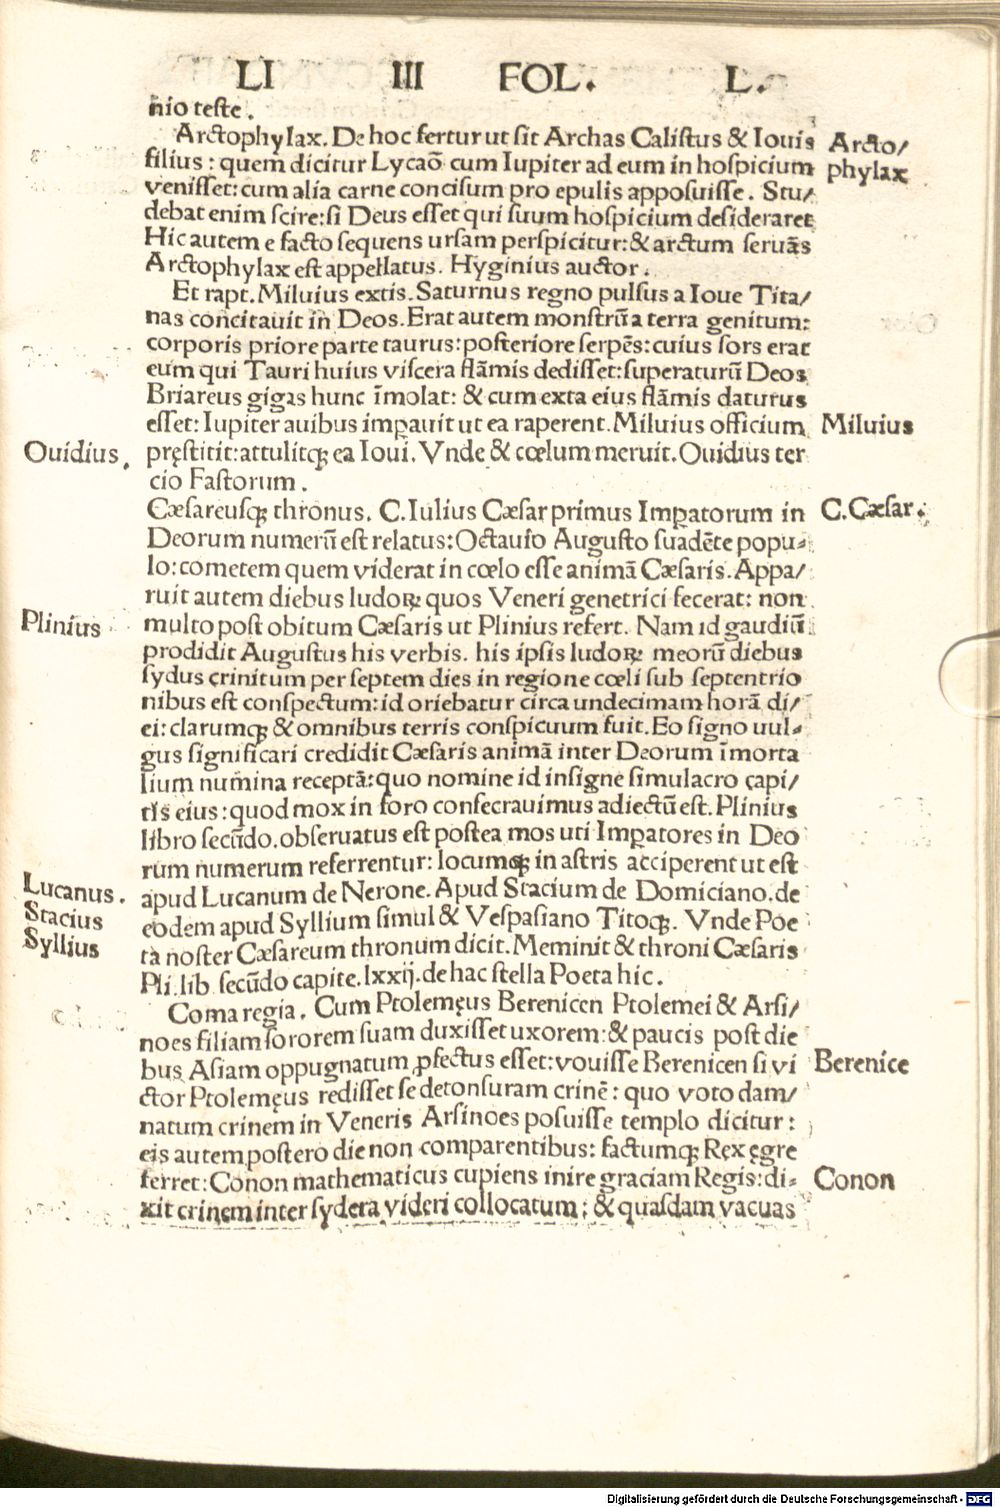 LI III FOL. L.
nio teste.
Arctophylax. De hoc fertur ut sit Archas Calistus & Iouis
Arcto/
phylax
filius: quem dicitur Lycaõ cum Iupiter ad eum in hospicium
venisset: cum alia carne concisum pro epulis apposuisse. Stu/
debat enim scire: si Deus esset qui suum hospicium desideraret
Hic autem e facto sequens ursam perspicitur: & arctum seruãs
Arctophylax est appellatus. Hyginius auctor.
Et rapt. Miluius extis. Saturnus regno pulsus a Ioue Tita/
nas concitauit in Deos. Erat autem monstrũ a terra genitum:
corporis priore parte taurus: posteriore serpẽs: cuius sors erat
eum qui Tauri huius viscera flãmis dedisset: superaturũ Deos
Briareus gigas hunc ĩmolat: & cum exta eius flãmis daturus
esset: Iupiter auibus imꝑauit ut ea raperent. Miluius officium
Miluius
Ouidius.
pręstitit: attulitqꝫ ea Ioui. Vnde & cœlum meruit. Ouidius ter
cio Fastorum.
Cæsareusqꝫ thronus. C. Iulius Cæsar primus Imꝑatorum in
C. Cæsar.
Deorum numerũ est relatus: Octauio Augusto suadẽte popu-
lo: cometem quem viderat in cœlo esse animã Cæsaris. Appa/
ruit autem diebus ludoꝝ quos Veneri genetrici fecerat: non
Plinius
multo post obitum Cæsaris ut Plinius refert. Nam id gaudiũ
prodidit Augustus his verbis. his ipsis ludoꝝ meorũ diebus
sydus crinitum per septem dies in regione cœli sub septentrio
nibus est conspectum: id oriebatur circa undecimam horã di/
ei: clarumqꝫ & omnibus terris conspicuum fuit. Eo signo uul-
gus significari credidit Cæsaris animã inter Deorum ĩmorta
lium numina receptã: quo nomine id insigne simulacro capi/
tis eius: quod mox in foro consecrauimus adiectũ est. Plinius
libro secũdo. obseruatus est postea mos uti Imꝑatores in Deo
rum numerum referrentur: locumqꝫ in astris acciperent ut est
Lucanus.
Stacius
Syllius
apud Lucanum de Nerone. Apud Stacium de Domiciano. de
eodem apud Syllium simul & Vespasiano Titoqꝫ. Vnde Poe
ta noster Cæsareum thronum dicit. Meminit & throni Cæsaris
Pli. lib secũdo capite. lxxij. de hac stella Poeta hic.
Coma regia. Cum Ptolemęus Berenicen Ptolemei & Arsi/
noes filiam sororem suam duxisset uxorem: & paucis post die
bus Asiam oppugnatum ꝓfectus esset: vouisse Berenicen si vi
Berenice
ctor Ptolemęus redisset se detonsuram crinẽ: quo voto dam/
natum crinem in Veneris Arsinoes posuisse templo dicitur:
eis autem postero die non comparentibus: factumqꝫ Rex ęgre
ferret: Conon mathematicus cupiens inire graciam Regis: di-
Conon
xit crinem inter sydera videri collocatum: & quasdam vacuas
Digitalisierung gefördert durch die Deutsche Forschungsgemeinschaft - DFG